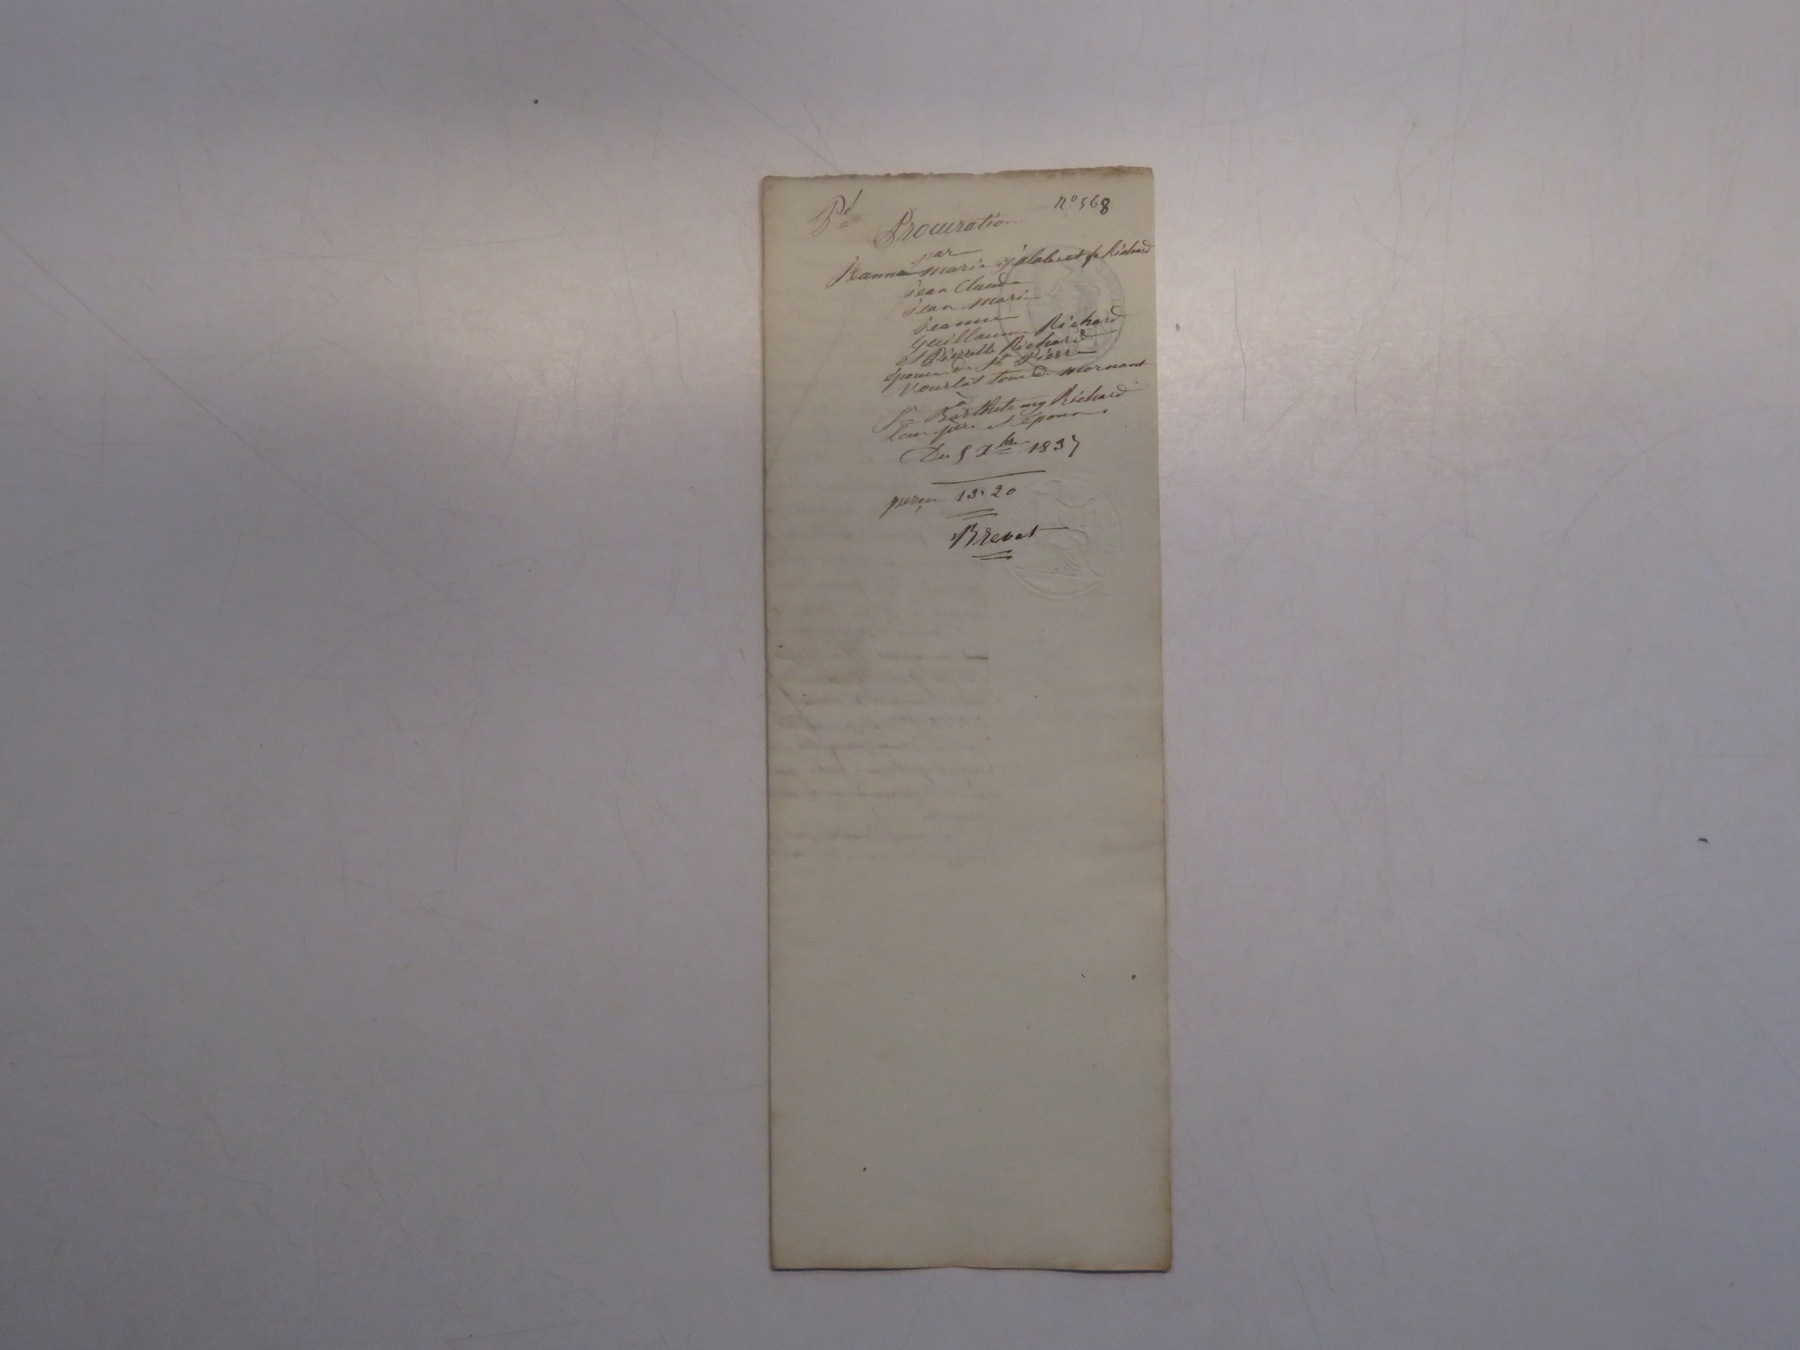 Pd
n° 568
Procuration
par
Jeanne marie jalabert fe Richard
jean Claude
jean marie
jeanne
guillaume Richard
et Pierrette Richard
épouse de Sr Pierre
tous de mornant
à
Sr Barthelemy Richard
leur père et époux.
Du 5 Xbre 1837
perçu 13.20
Brevet